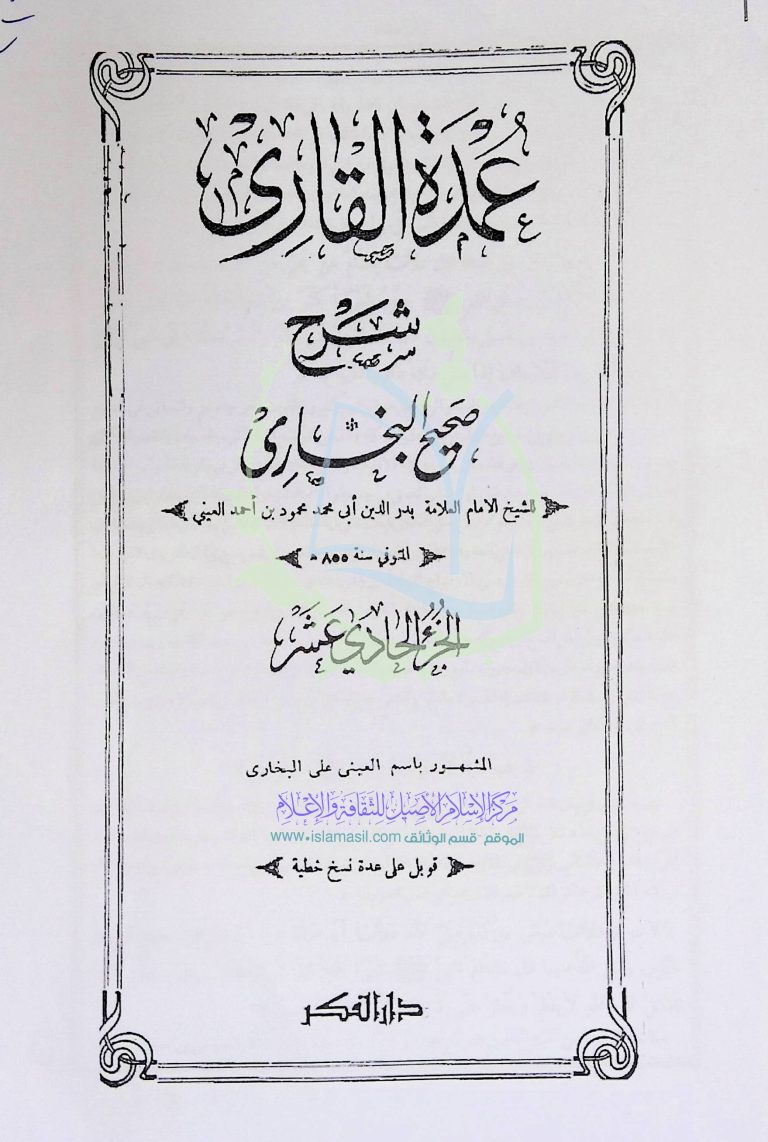 عُمدَةُ القَارِيْ
شَرح
صَحِيح البُخَارِيْ
للشيخ الامام العلامة بدر الدين أبى محمد محمود بن أحمد العيني
المتوفي سنة ٨٥٥ ه
الجُزءُ الحَادِي عَشَر
المشهور باسم العينى على البخارى
مركز الإسلام الأصيل للثقافة والإعلام
الموقع -قسم الوثائق www.islamasil.com
قوبل على عدة نسخ خطية
دار الفكر